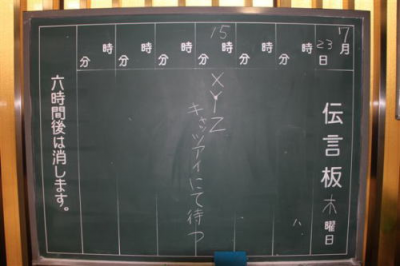 7月23日
伝言板 木曜日
時分
時分
15時分
XYZ
キャッツアイにて待つ
時分
時分
時分
六時間後は消します。